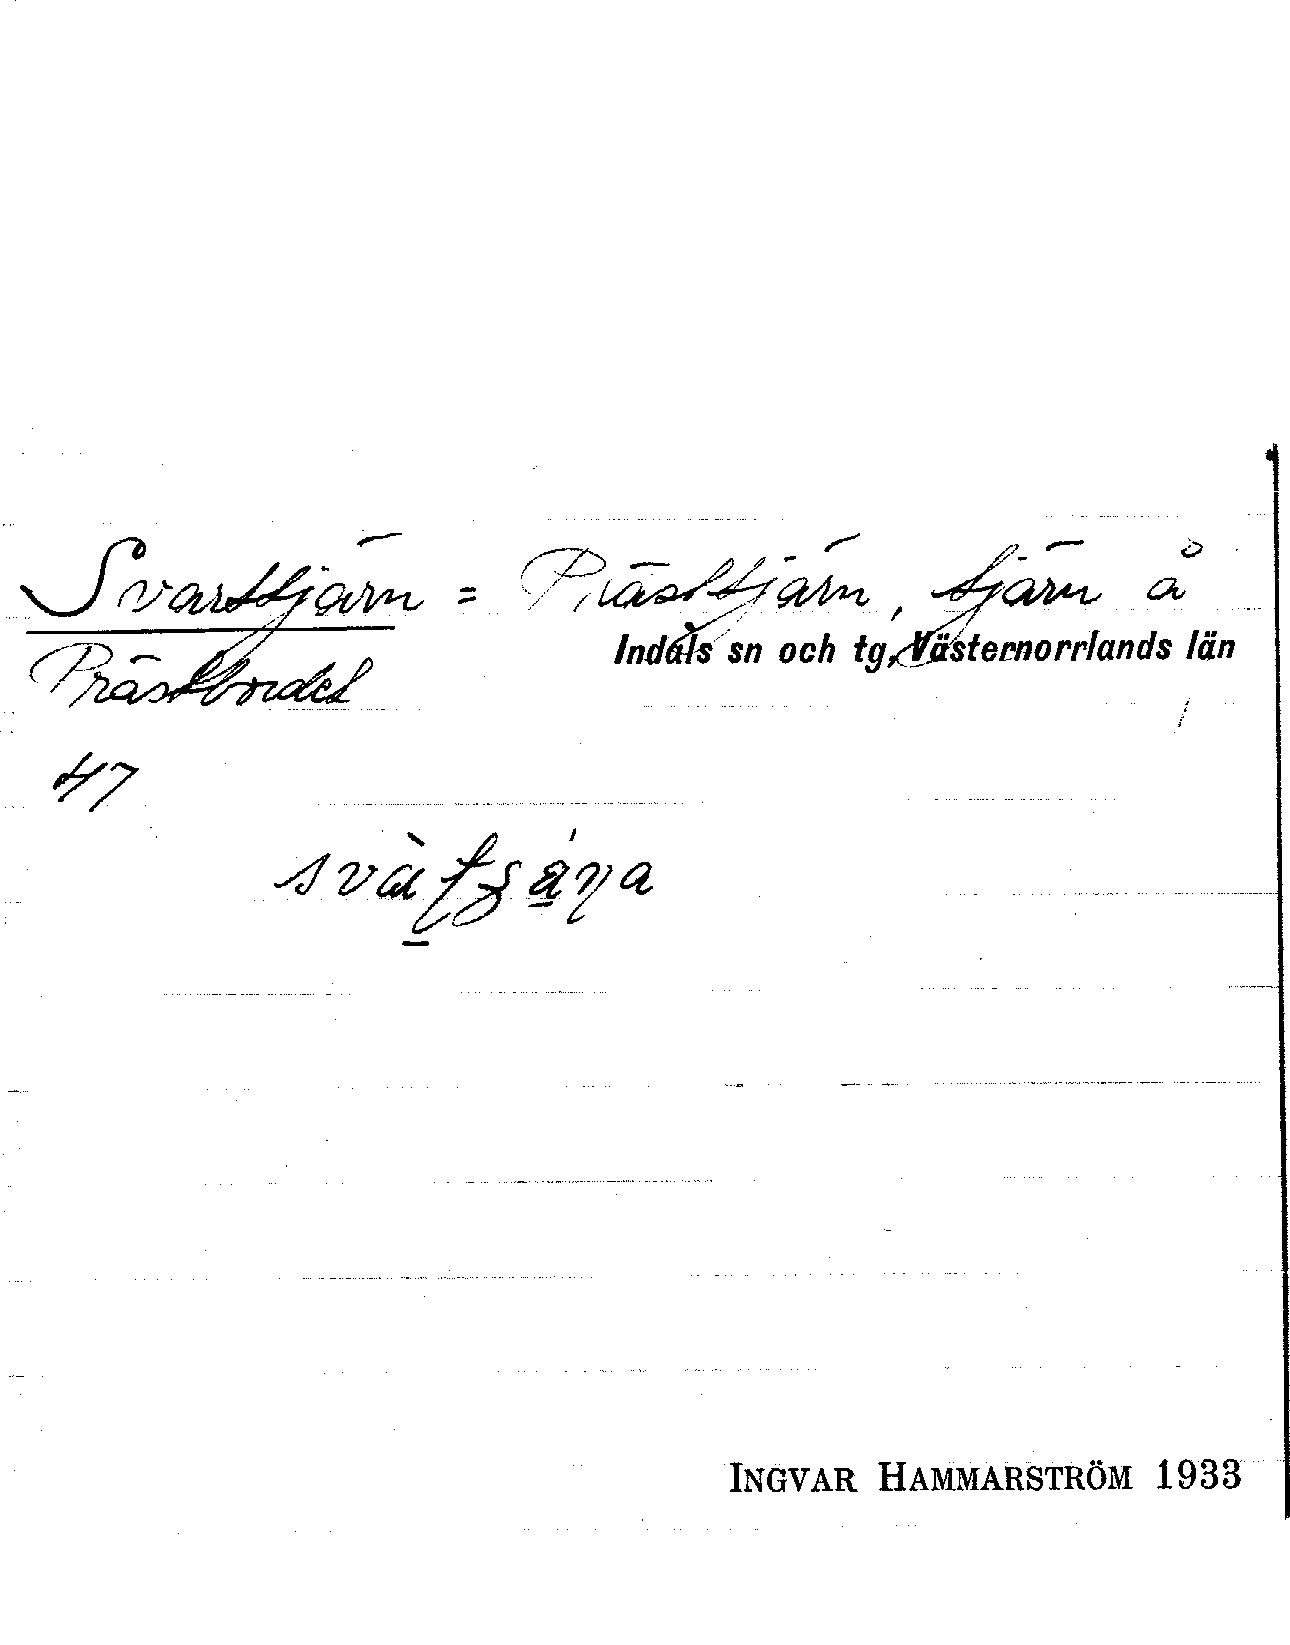 Svarttjärn = Prästtjärn, tjärn å
Indals sn och tg, Västernorrlands län
Prästbordet
47
INGVAR HAMMARSTRÖM 1933